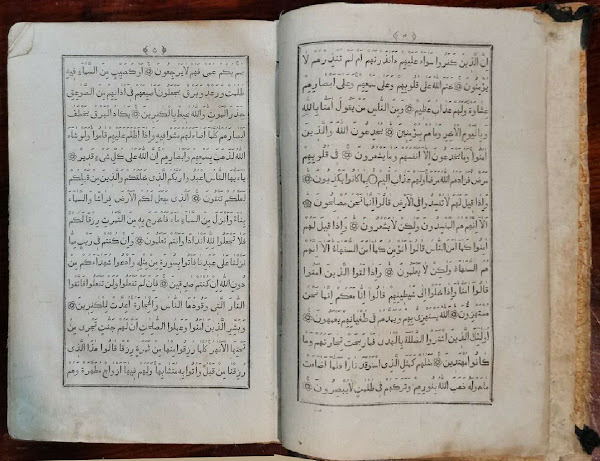 ان الذين كفروا سواء عليهم ءانذرتهم ام لم تنذرهم لا
يؤمنون ختم الله على قلوبهم وعلى سمعهم وعلى ابصارهم
غشاوة ولهم عذاب عظيم ومن الناس من يقول امنا بالله
وباليوم الاخر وما هم بمؤمنين يخدعون الله والذين
امنوا وما يخدعون الا انفسهم وما يشعرون في قلوبهم
مرض فزادهم الله مرضا ولهم عذاب اليم بما كانوا يكذبون
واذا قيل لهم لا تفسدوا في الارض قالوا انما نحن مصلحون
الا انهم هم المفسدون ولكن لا يشعرون واذا قيل لهم
امنوا كما امن الناس قالوا انؤمن كما امن السفهاء الا انهم
هم السفهاء ولكن لا يعلمون واذا لقوا الذين امنوا
قالوا امنا واذا خلوا الى شيطينهم قالوا انا معكم انما نحن
مستهزءون الله يستهزئ بهم ويمدهم في طغيانهم يعمهون
اولئك الذين اشتروا الضللة بالهدى فما ربحت تجارتهم وما
كانوا مهتدين مثلهم كمثل الذي استوقد نارا فلما اضاءت
ما حوله ذهب الله بنورهم وتركهم في ظلمت لا يبصرون
صم بكم عمي فهم لا يرجعون او كصيب من السماء فيه
ظلمت ورعد وبرق يجعلون اصبعهم في اذانهم من الصوعق
حذر الموت والله محيط بالكفرين يكاد البرق يخطف
ابصارهم كلما اضاء لهم مشوا فيه واذا اظلم عليهم قاموا ولو شاء
الله لذهب بسمعهم وابصارهم ان الله على كل شيء قدير
يايها الناس اعبدوا ربكم الذي خلقكم والذين من قبلكم
لعلكم تتقون الذي جعل لكم الارض فراشا والسماء
بناء وانزل من السماء ماء فاخرج به من الثمرت رزقا لكم
فلا تجعلوا لله اندادا وانتم تعلمون وان كنتم في ريب مما
نزلنا على عبدنا فاتوا بسورة من مثله وادعوا شهداءكم من
دون الله ان كنتم صدقين فان لم تفعلوا ولن تفعلوا فاتقوا
النار التي وقودها الناس والحجارة اعدت للكفرين
وبشر الذين امنوا وعملوا الصلحت ان لهم جنت تجري من
تحتها الانهر كلما رزقوا منها من ثمرة رزقا قالوا هذا الذي
رزقنا من قبل واتوا به متشابها ولهم فيها ازواج مطهرة وهم